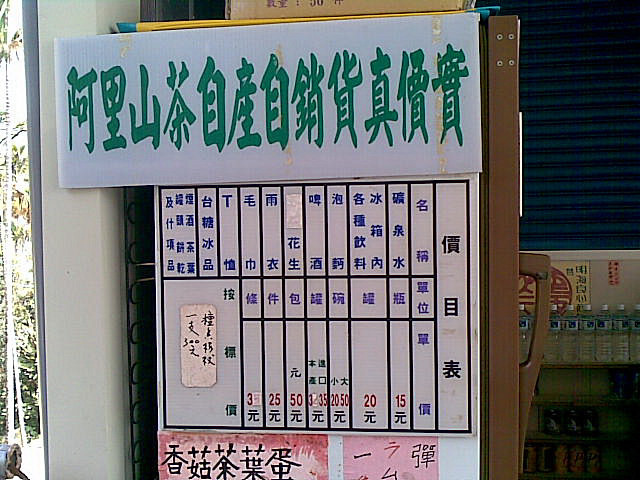 數量：50 件
阿里山茶自産自銷貨真價實
價目表
名稱 單位 單價
礦泉水 瓶 15元
冰箱內各種飲料 罐 20元
泡麪 碗 大50 小20元
啤酒 罐 進口35 本產3元
花生 包 50元
雨衣 件 25元
毛巾 條 3元
T恤 按標價
台糖冰品
煙酒茶葉罐頭餅乾及什項品
香菇茶葉蛋
彈
ラ
一